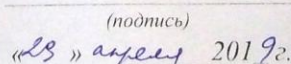 (подпись)
«23» апреля 2019г.